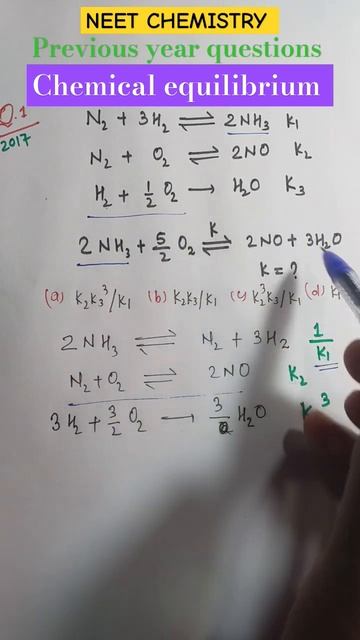 NEET CHEMISTRY
Previous year questions
Chemical equilibrium
Q.1
2017
N₂ + 3H₂ ⇌ 2NH₃ K₁
N₂ + O₂ ⇌ 2NO K₂
H₂ + 1/2 O₂ → H₂O K₃
2NH₃ + 5/2 O₂ ⇌ 2NO + 3H₂O
K
K = ?
(a) K₂K₃³/K₁ (b) K₂K₃/K₁ (c) K₂³K₃/K₁ (d)
2NH₃ ⇌ N₂ + 3H₂ 1/K₁
N₂ + O₂ ⇌ 2NO K₂
3H₂ + 3/2 O₂ → 3 H₂O K ³